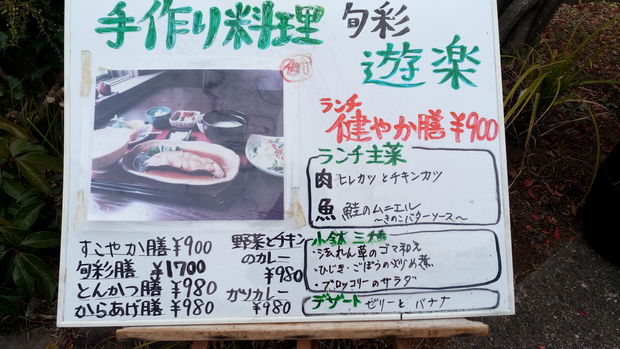 手作り料理 旬彩
遊楽
ランチ
健やか膳 ¥900
ランチ主菜
肉 ヒレカツとチキンカツ
魚 鮭のムニエル
～きのこバターソース～
小鉢 三種
・ほうれん草のゴマ和え
・ひじき・ごぼうの炒め煮
・ブロッコリーのサラダ
デザート ゼリーと バナナ
すこやか膳 ¥900
旬彩膳 ¥1700
とんかつ膳 ¥980
からあげ膳 ¥980
野菜とチキン
のカレー
¥980
カツカレー
¥980